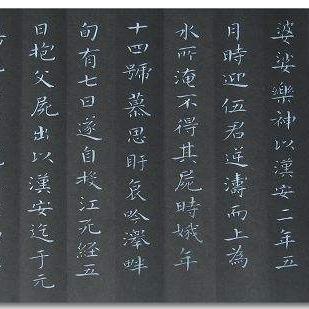 婆娑樂神以漢安二年五
月時迎伍君逆濤而上為
水所淹不得其屍時娥年
十四號慕思盱哀吟澤畔
旬有七日遂自投江死経五
日抱父屍出以漢安迄于元